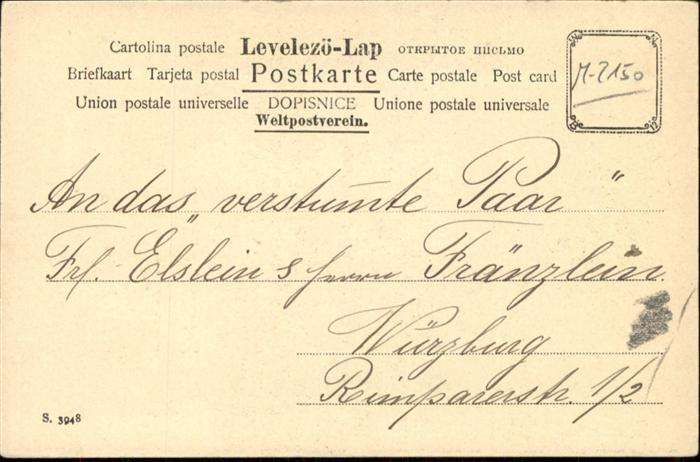 Cartolina postale Levelezö-Lap ОТКРЫТОЕ ПИСЬМО
Briefkaart Tarjeta postal Postkarte Carte postale Post card
Union postale universelle DOPISNICE Unione postale universale
Weltpostverein.
M-2150
An das „verstum̅te Paar"
Frl. Elslein & Herrn Fränzlein
Würzburg
Reimparerstr. 1/2
S. 3948